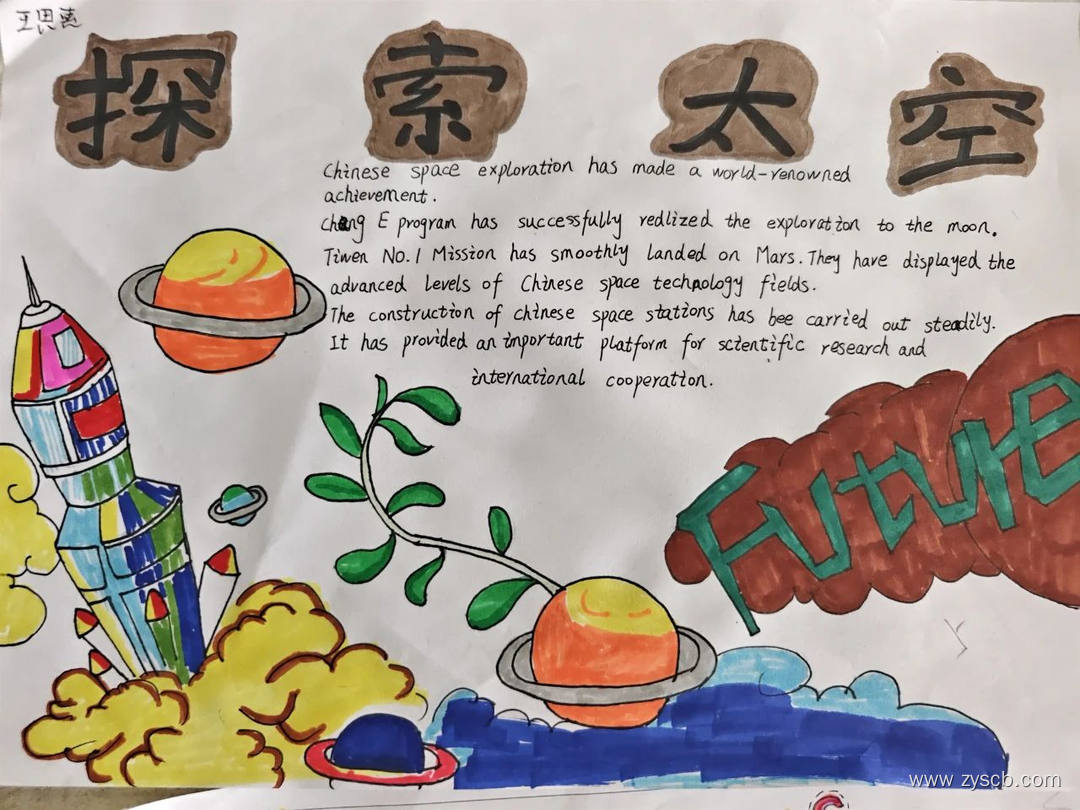 王思慧
探索太空
Chinese space exploration has made a world-renowned
achievement.
Chang E program has successfully redlized the exploration to the moon.
Tiwen No.1 Mission has smoothly landed on Mars. They have displayed the
advanced levels of Chinese space technology fields.
The construction of chinese space stations has bee carried out steadily.
It has provided an important platform for scientific research and
international cooperation.
Future
www.zyscb.com